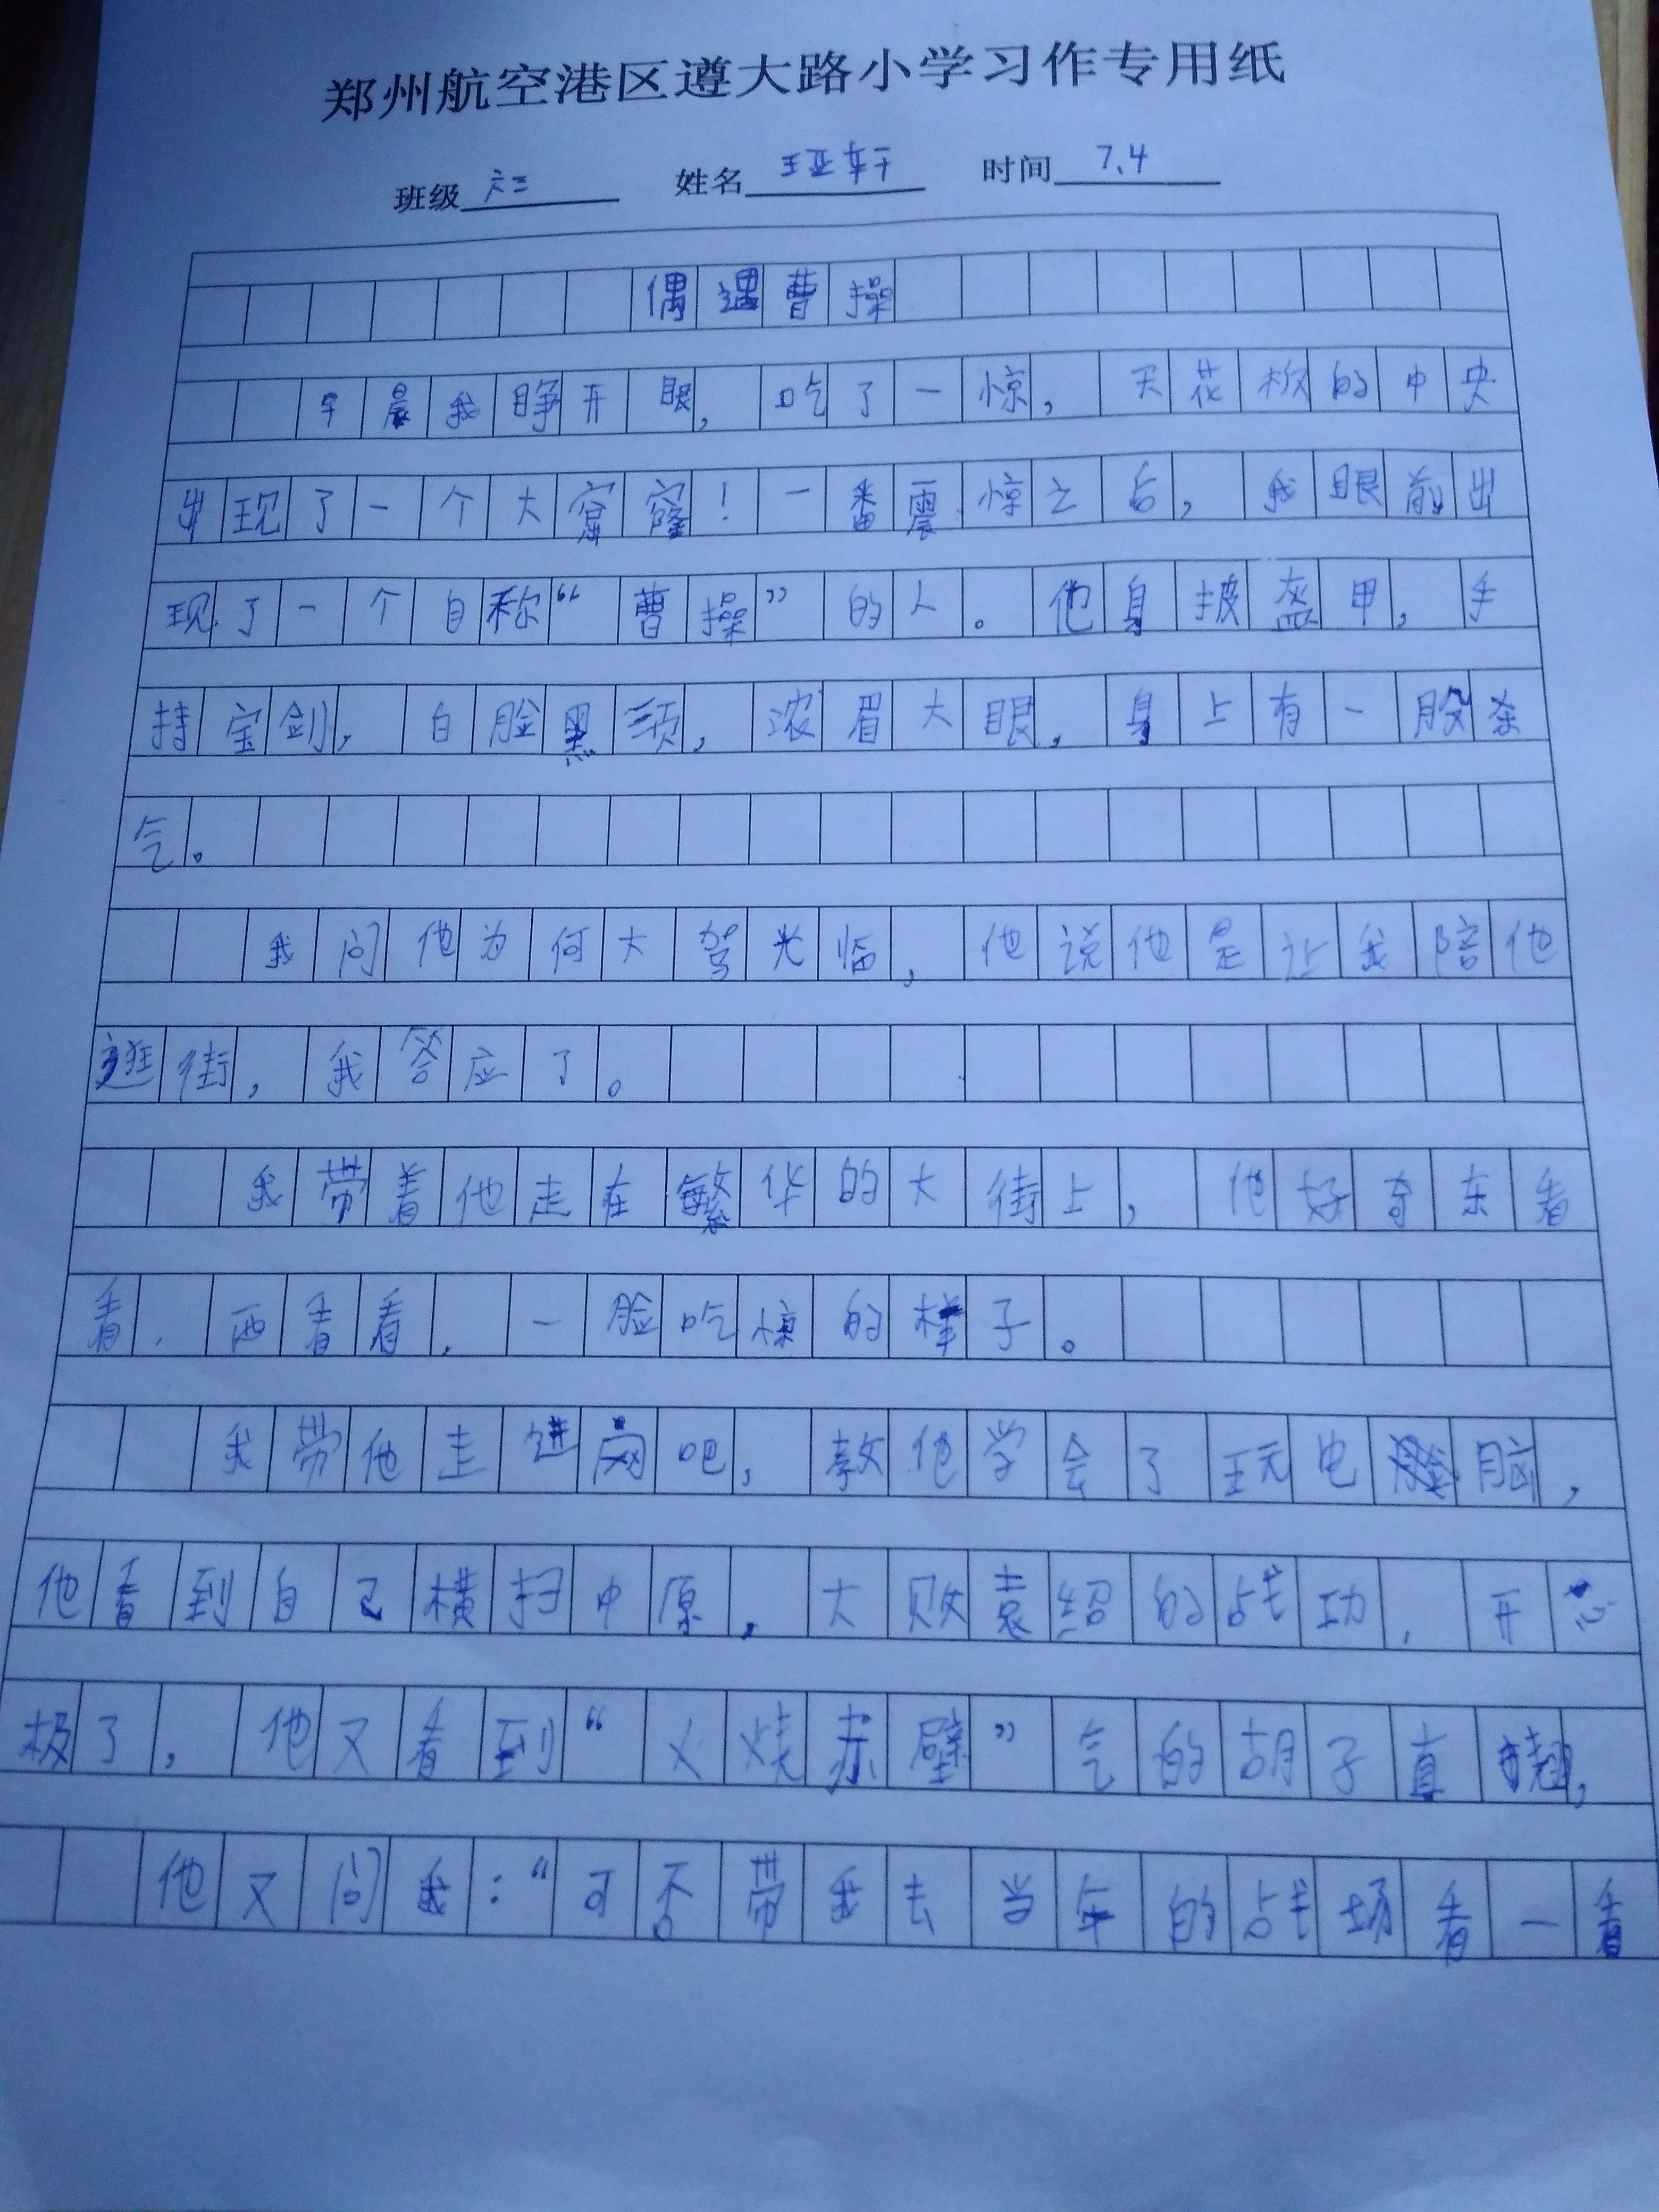 郑州航空港区遵大路小学习作专用纸
班级 六三 姓名 王亚轩 时间 7.4
偶遇曹操
早晨我睁开眼，吃了一惊，天花板的中央
出现了一个大窟窿！一番震惊之后，我眼前出
现了一个自称“曹操”的人。他身披盔甲，手
持宝剑，白脸黑须，浓眉大眼，身上有一股杀
气。
我问他为何大驾光临，他说他是让我陪他
逛街，我答应了。
我带着他走在繁华的大街上，他好奇东看
看，西看看，一脸吃惊的样子。
我带他走进网吧，教他学会了玩电脑，
他看到自己横扫中原，大败袁绍的战功，开心
极了，他又看到“火烧赤壁”气的胡子直翘，
他又问我：“可否带我去当年的战场看一看